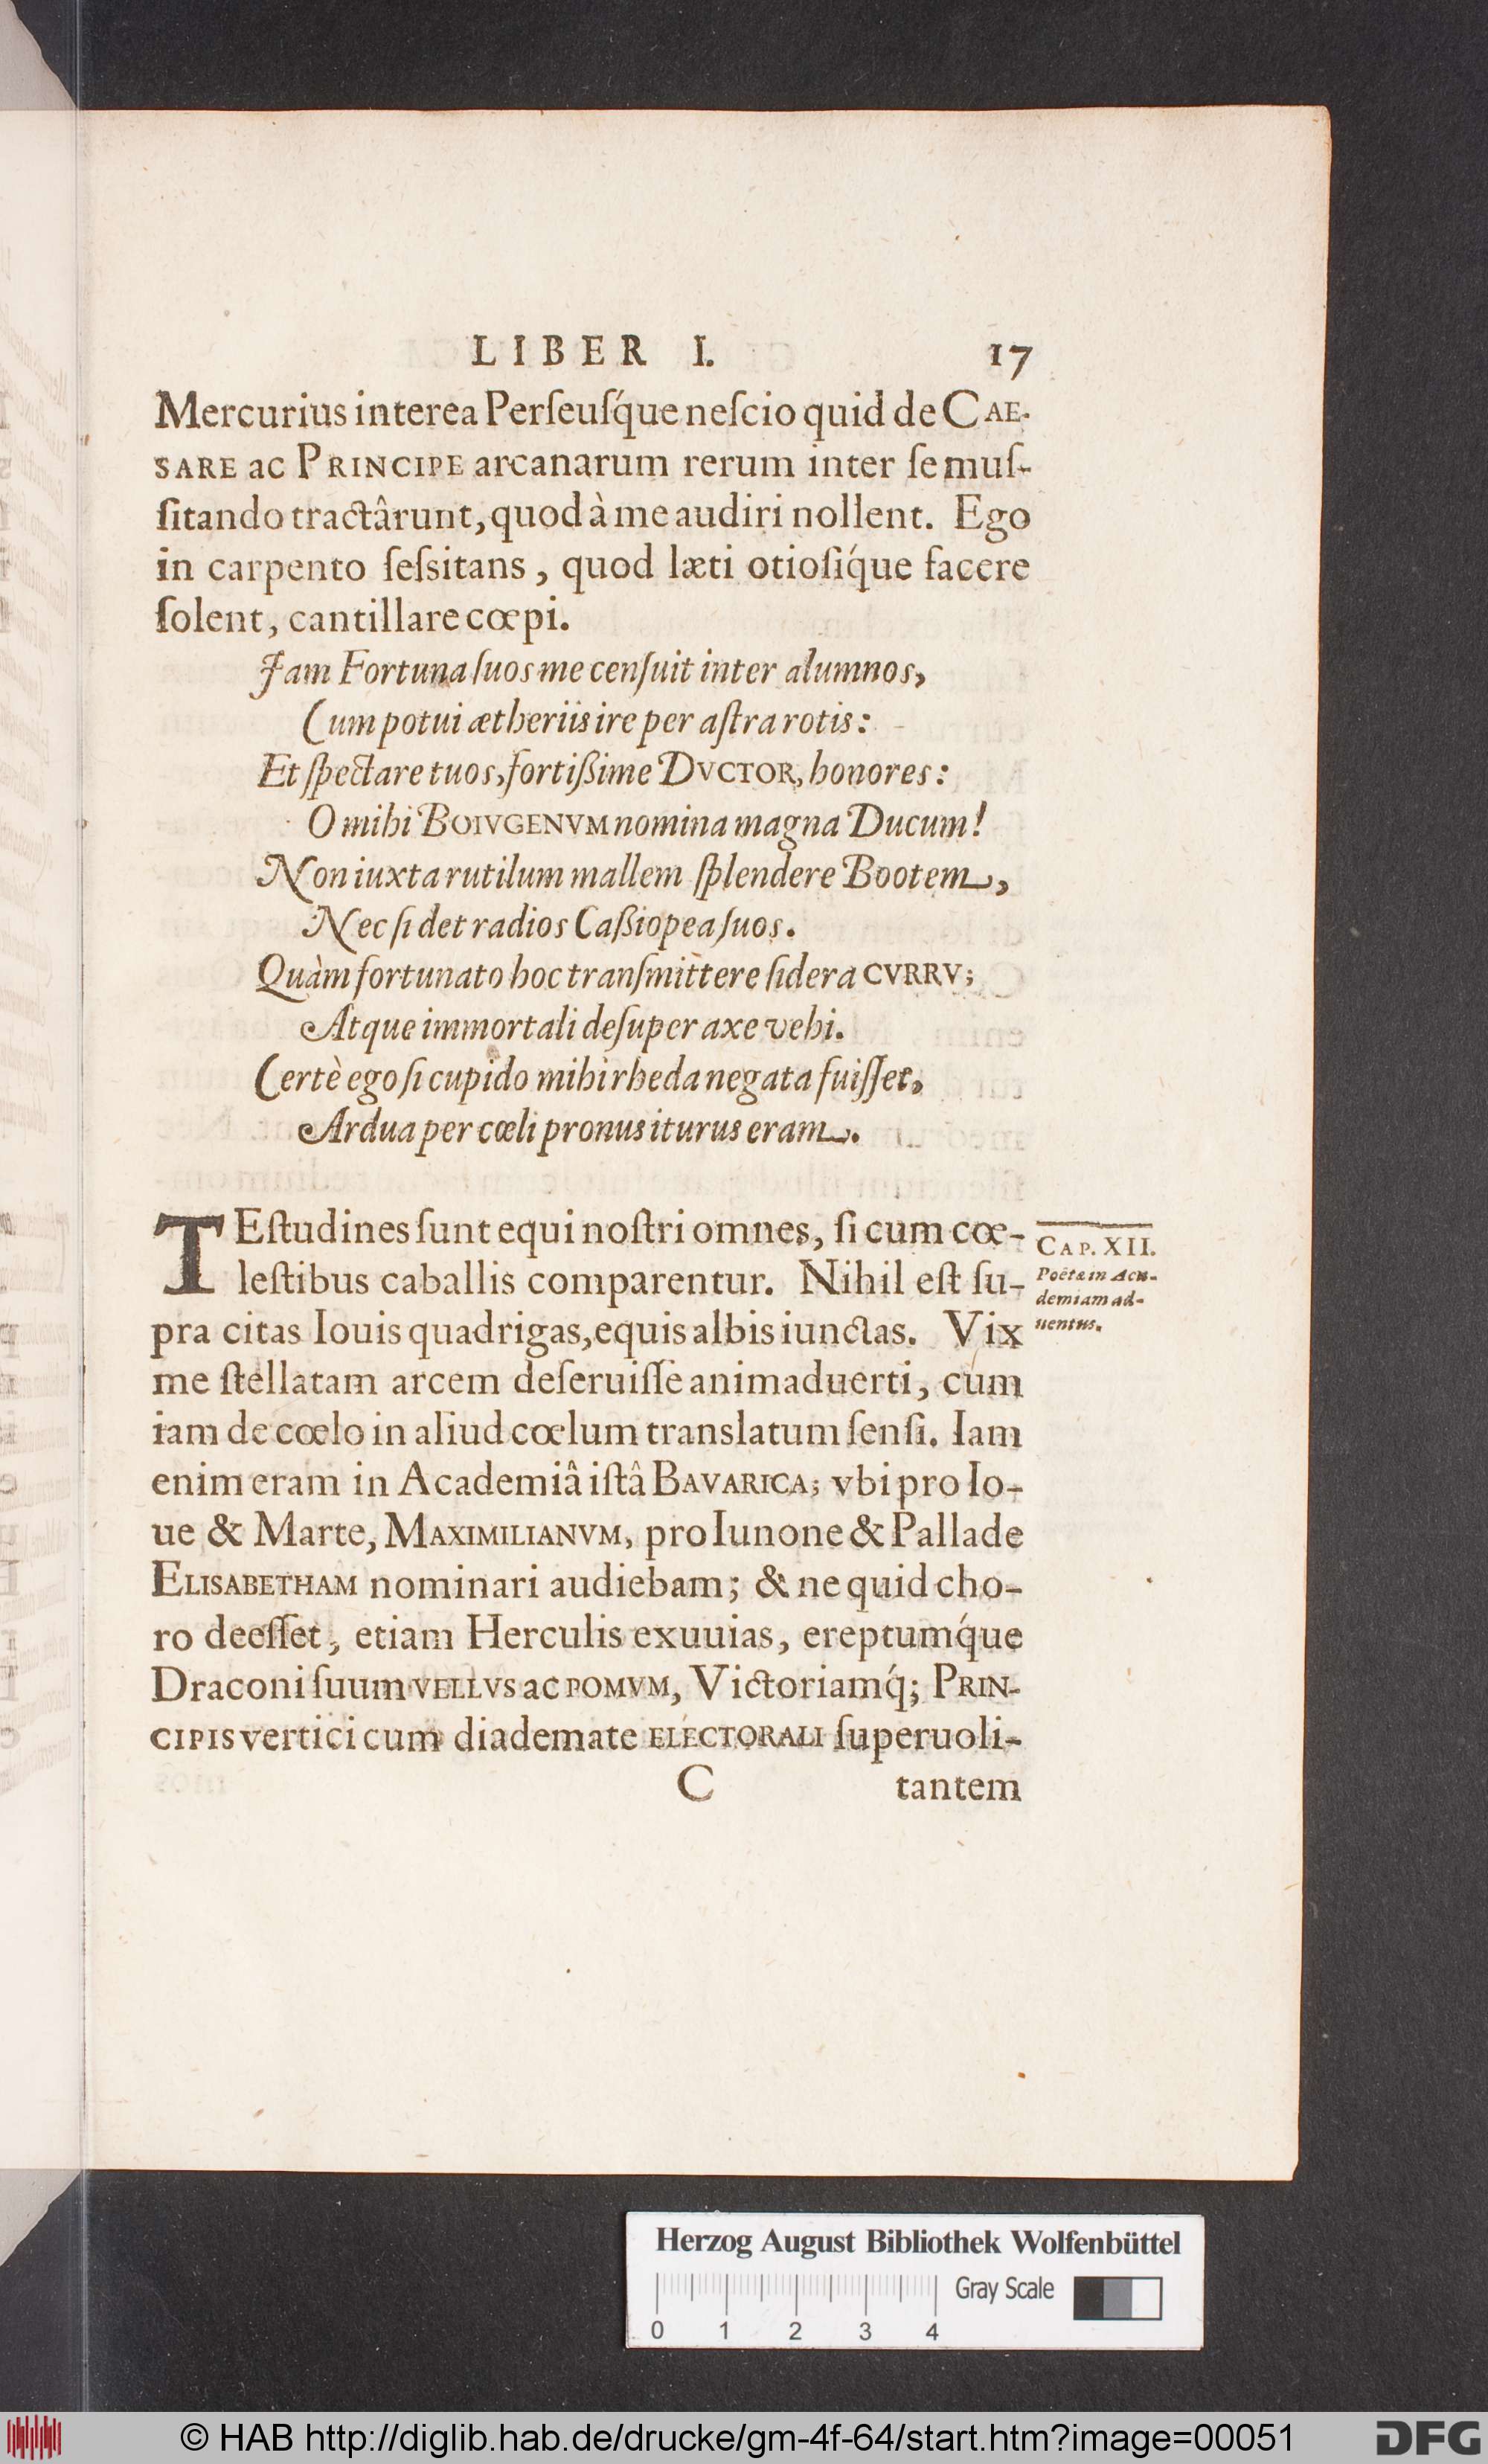 LIBER I. 17
Mercurius interea Perſeuſq́ue neſcio quid de CAE-
SARE ac PRINCIPE arcanarum rerum inter ſe muſ-
ſitando tractârunt, quod à me audiri nollent. Ego
in carpento ſeſsitans, quod læti otioſiq́ue facere
ſolent, cantillare cœpi.
Jam Fortuna ſuos me cenſuit inter alumnos,
Cum potui ætheriis ire per aſtra rotis:
Et ſpectare tuos, fortißime DVCTOR, honores:
O mihi BOIVGENVM nomina magna Ducum!
Non iuxta rutilum mallem ſplendere Bootem,
Nec ſi det radios Caßiopea ſuos.
Quàm fortunato hoc tranſmittere ſidera CVRRV;
Atque immortali deſuper axe vehi.
Certè ego ſi cupido mihi rheda negata fuiſſet,
Ardua per cœli pronus iturus eram.
TEſtudines ſunt equi noſtri omnes, ſi cum cœ-
leſtibus caballis comparentur. Nihil eſt ſu-
pra citas Iouis quadrigas, equis albis iunctas. Vix
me ſtellatam arcem deſeruiſſe animaduerti, cúm
iam de cœlo in aliud cœlum translatum ſenſi. Iam
enim eram in Academiâ iſtâ BAVARICA; vbi pro Io-
ue & Marte, MAXIMILIANVM, pro Iunone & Pallade
ELISABETHAM nominari audiebam; & ne quid cho-
ro deeſſet, etiam Herculis exuuias, ereptumq́ue
Draconi ſuum VELLVS ac POMVM, Victoriamq́; PRIN-
CIPIS vertici cum diademate ELECTORALI ſuperuoli-
C tantem
CAP. XII.
Poëtæ in Aca-
demiam ad-
uentus.
Herzog August Bibliothek Wolfenbüttel
Gray Scale
0 1 2 3 4
© HAB http://diglib.hab.de/drucke/gm-4f-64/start.htm?image=00051
DFG